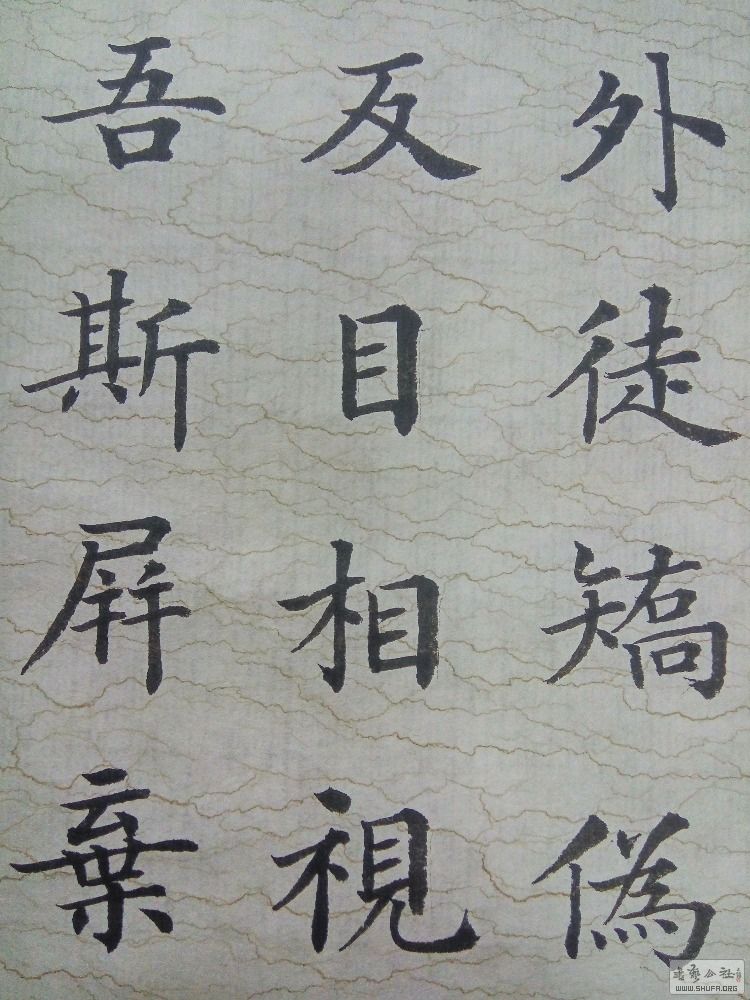 外徒矯偽
反目相視
吾斯屏棄
WWW.SHUFA.ORG